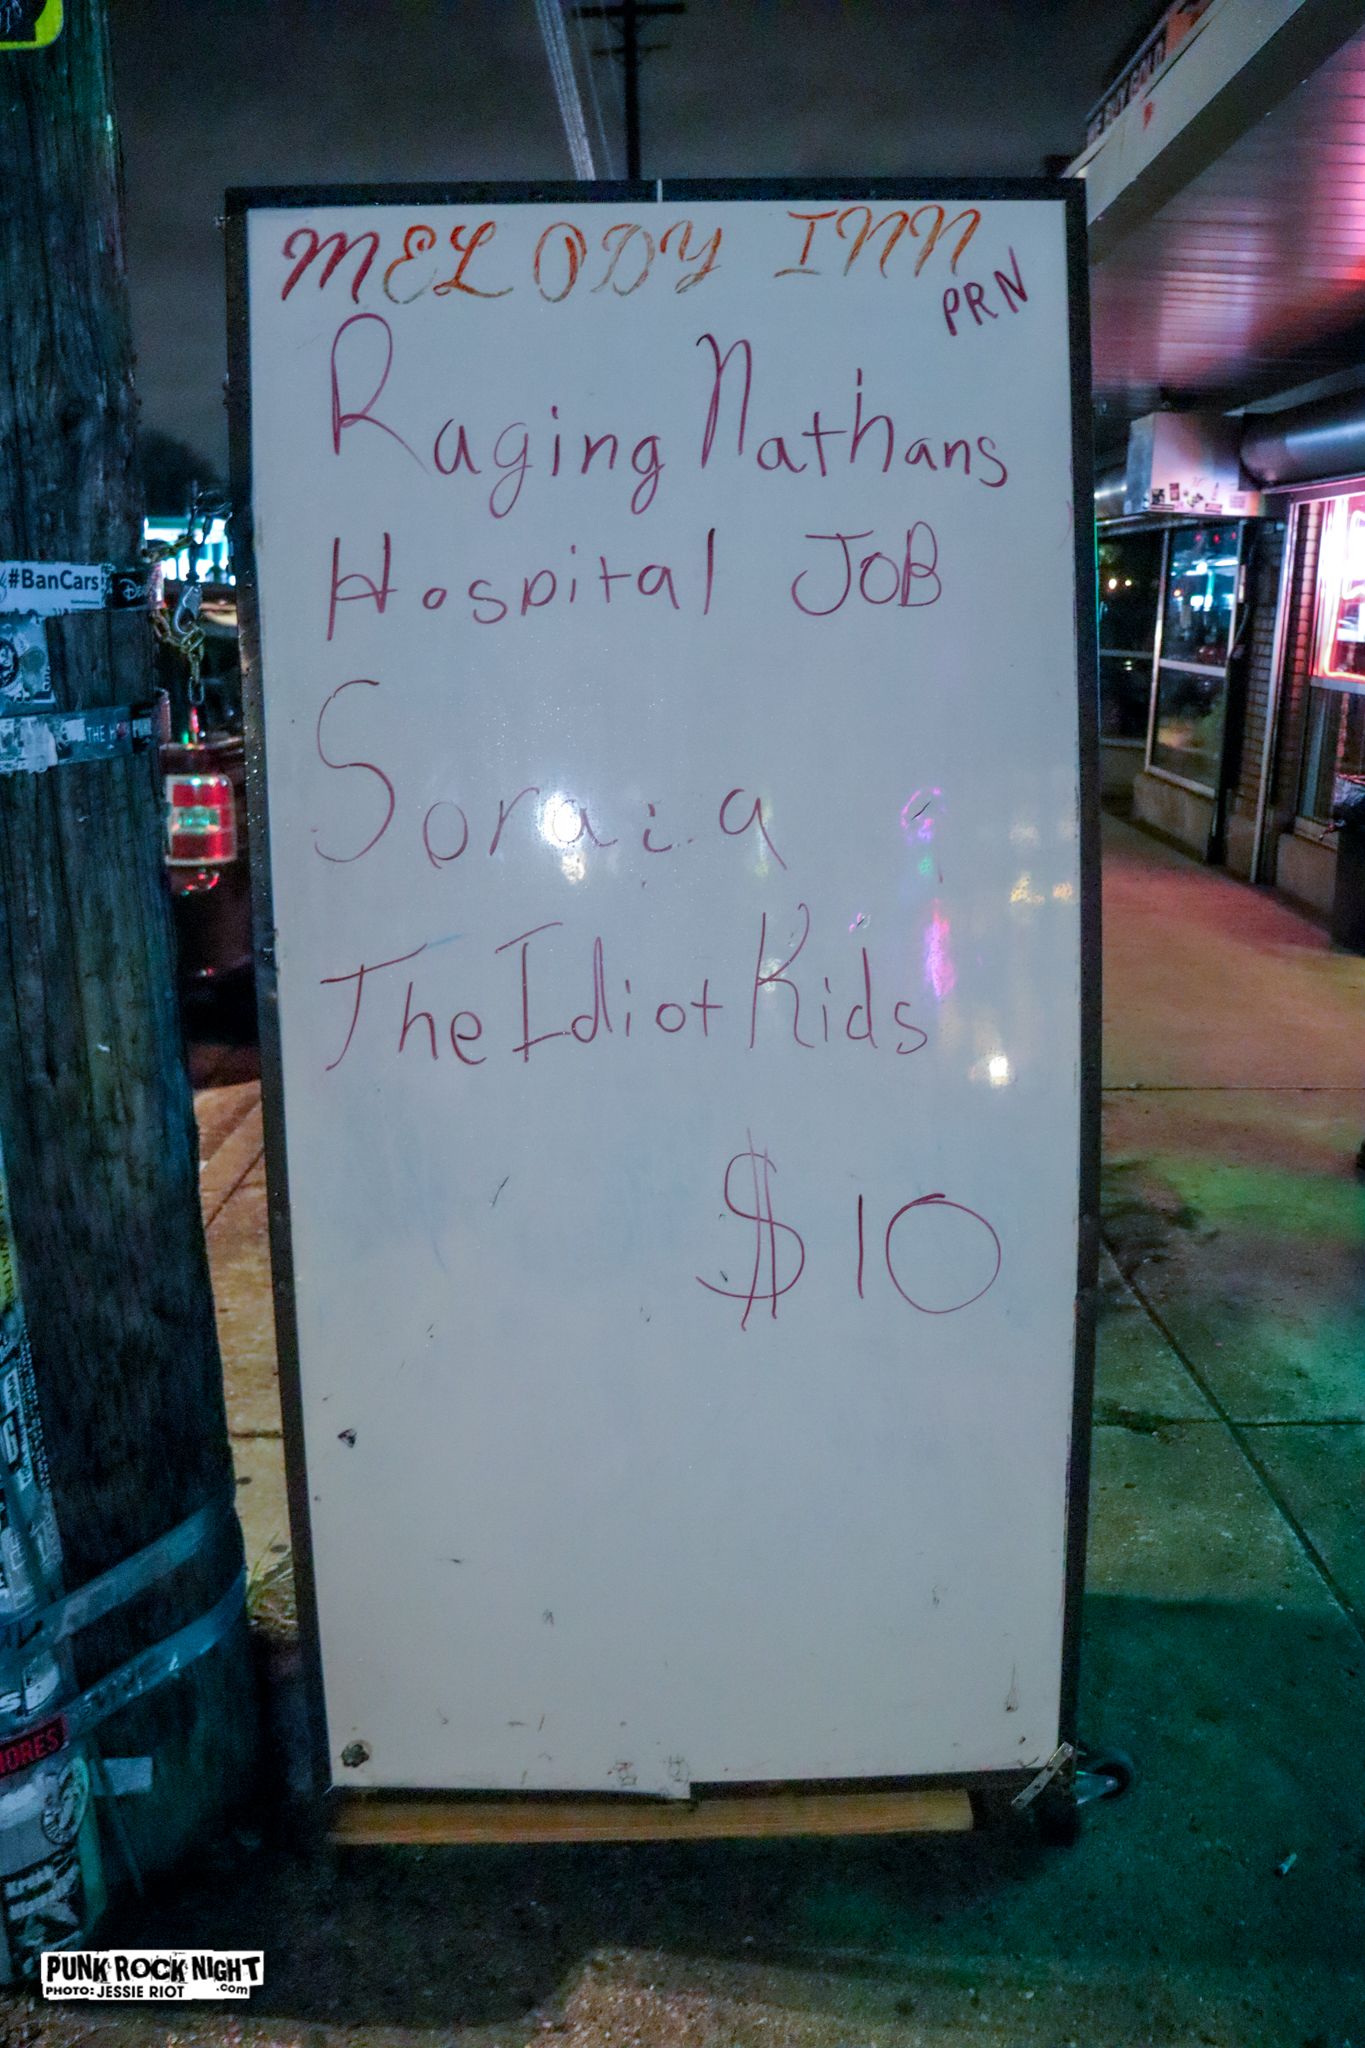 MELODY INN
PRN
Raging Nathans
Hospital JOB
Soraia
The Idiot Kids
$10
#BanCars
PUNK ROCK NIGHT
.com
PHOTO: JESSIE RIOT